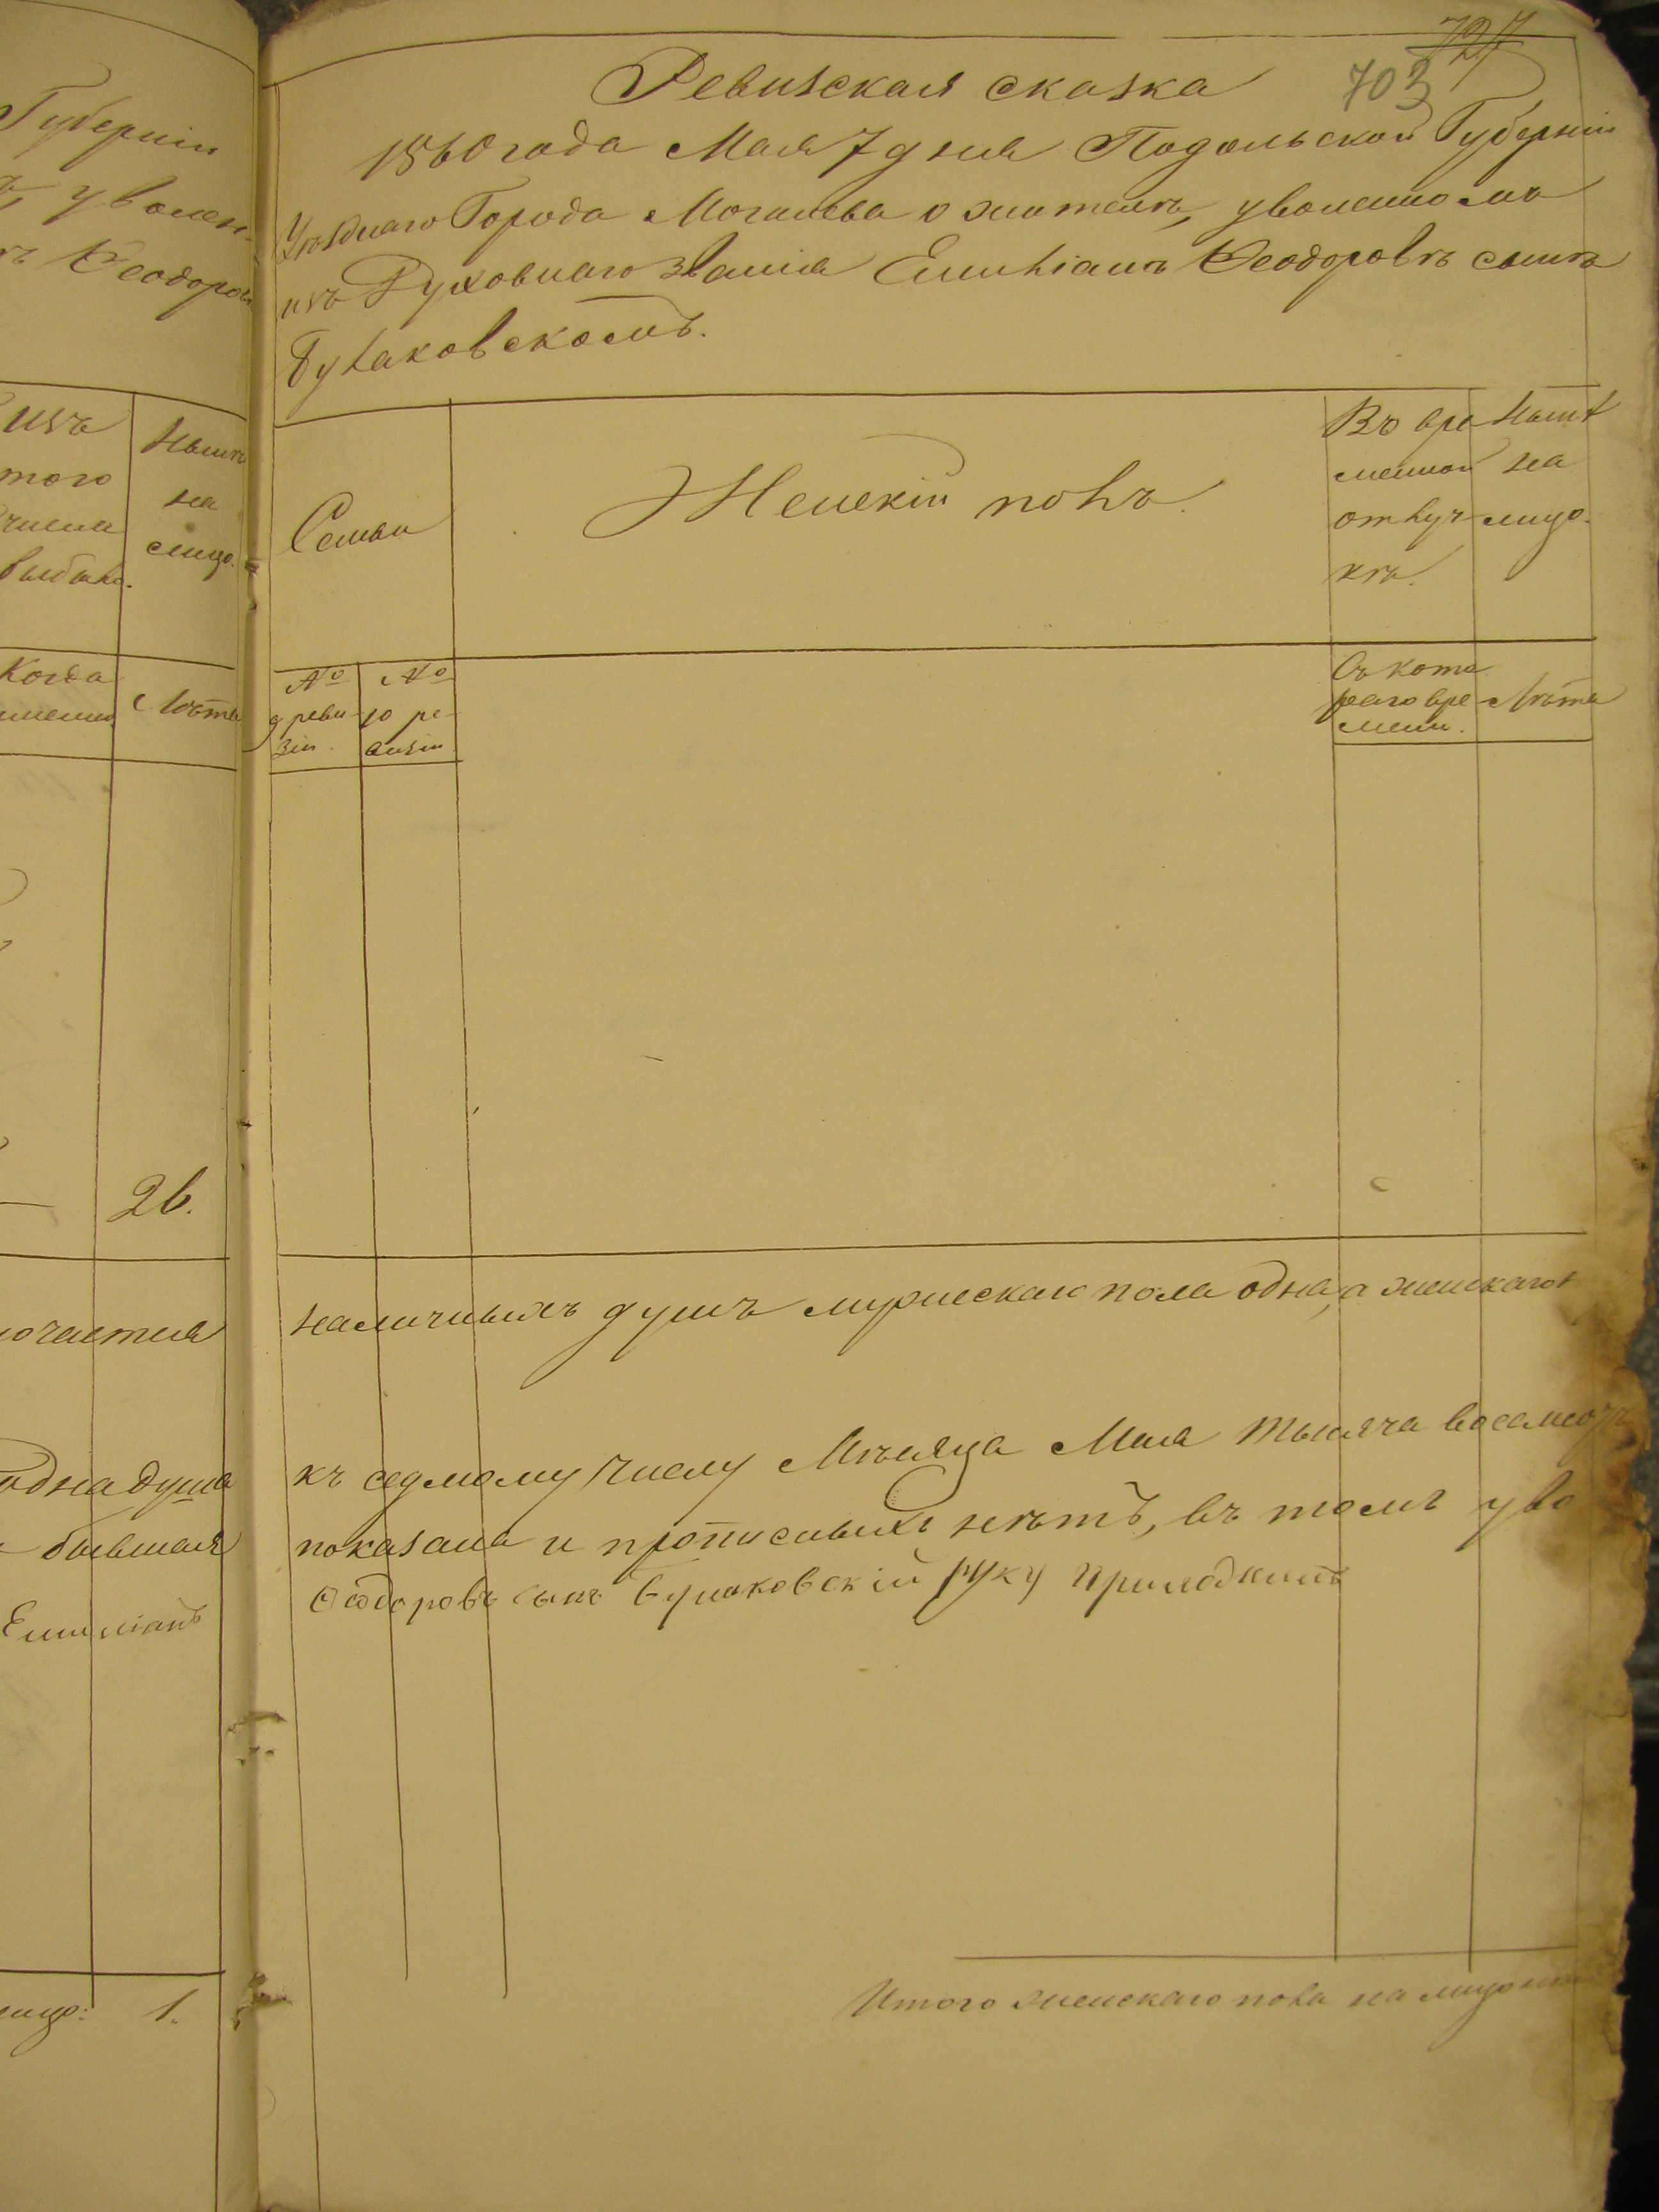 Губерніи
уволен-
Ѳеодоров
изъ
того
числа
выбыло.
Нынѣ
на
лицо.
Когда
имянно
Лѣта
26.
одна душа
бывшая
Емиліанъ
лицо: 1.
727
703
Ревизская сказка
1860 года Мая 7 дня Подольской Губерніи
Уѣзднаго Города Могилева о жителѣ, уволенномъ
изъ Духовнаго званія Емиліанѣ Ѳеодоровѣ сынѣ
Булаковскомъ.
Семьи
Женскій полъ.
Въ вре
менной
отлуч-
кѣ.
Нынѣ
на
лицо.
№
9 реви
зіи.
№
10 ре-
визіи
Съ кото
раго вре
мени.
Лѣта
наличныхъ душъ мужескаго пола одна, а женскаго н
къ седмому числу Мѣсяца Мая тысяча восемсотъ
показана и прописныхъ нѣтъ, въ томъ уво
Ѳеодоровъ сынъ Булаковскій руку приложилъ
Итого женскаго пола на лицо нѣтъ